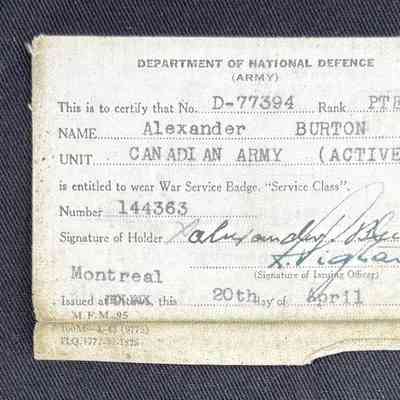 DEPARTMENT OF NATIONAL DEFENCE
(ARMY)
This is to certify that No. D-77394 Rank PTE
NAME Alexander BURTON
UNIT CANADIAN ARMY (ACTIVE
is entitled to wear War Service Badge. "Service Class".
Number 144363
Signature of Holder Alexander
(Signature of Issuing Officer)
Montreal
Issued at this 20th day of April
M.F.M. 95